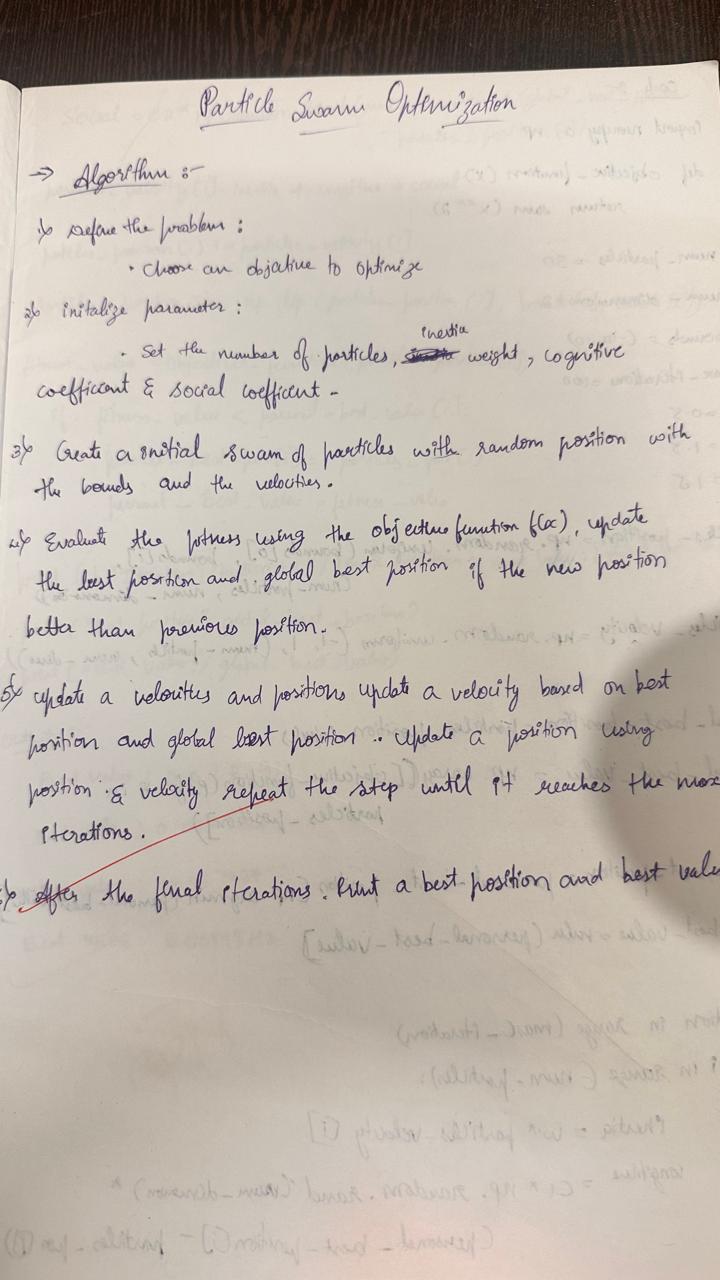 Particle Swarm Optimization
→ Algorithm :-
1) Define the problem :
• Choose an objective to optimize
2) initalize parameter :
• Set the number of particles, inertia weight, cognitive
coefficient & social coefficent -
3) Create a initial swam of particles with random position with
the bounds and the velocities.
4) Evaluate the fitness using the objective function f(x), update
the best position and global best position if the new position
better than previous position.
5) update a velocities and positions update a velocity based on best
position and global best position. update a position using
position & velocity repeat the step until it reaches the max
iterations.
After the final iterations. Print a best position and best value